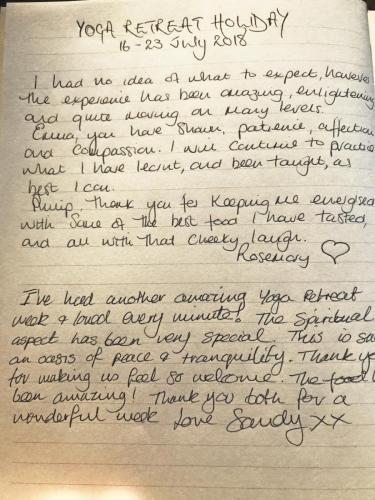 YOGA RETREAT HOLIDAY
16 - 23 July 2018
I had no idea of what to expect, however
the experience has been amazing, enlightening
and quite moving on many levels.
Emma, you have shown, patience, affection
and compassion. I will continue to practice
what I have learnt, and been taught, as
best I can.
Philip, thank you for keeping me energised
with some of the best food I have tasted,
and all with that cheeky laugh.
Rosemary ♡
I've had another amazing Yoga Retreat
week & loved every minute! The Spiritual
aspect has been very special. This is
an oasis of peace & tranquility. Thank
for making us feel so welcome. The food
been amazing! Thank you both for a
wonderful week Love Sandy xx